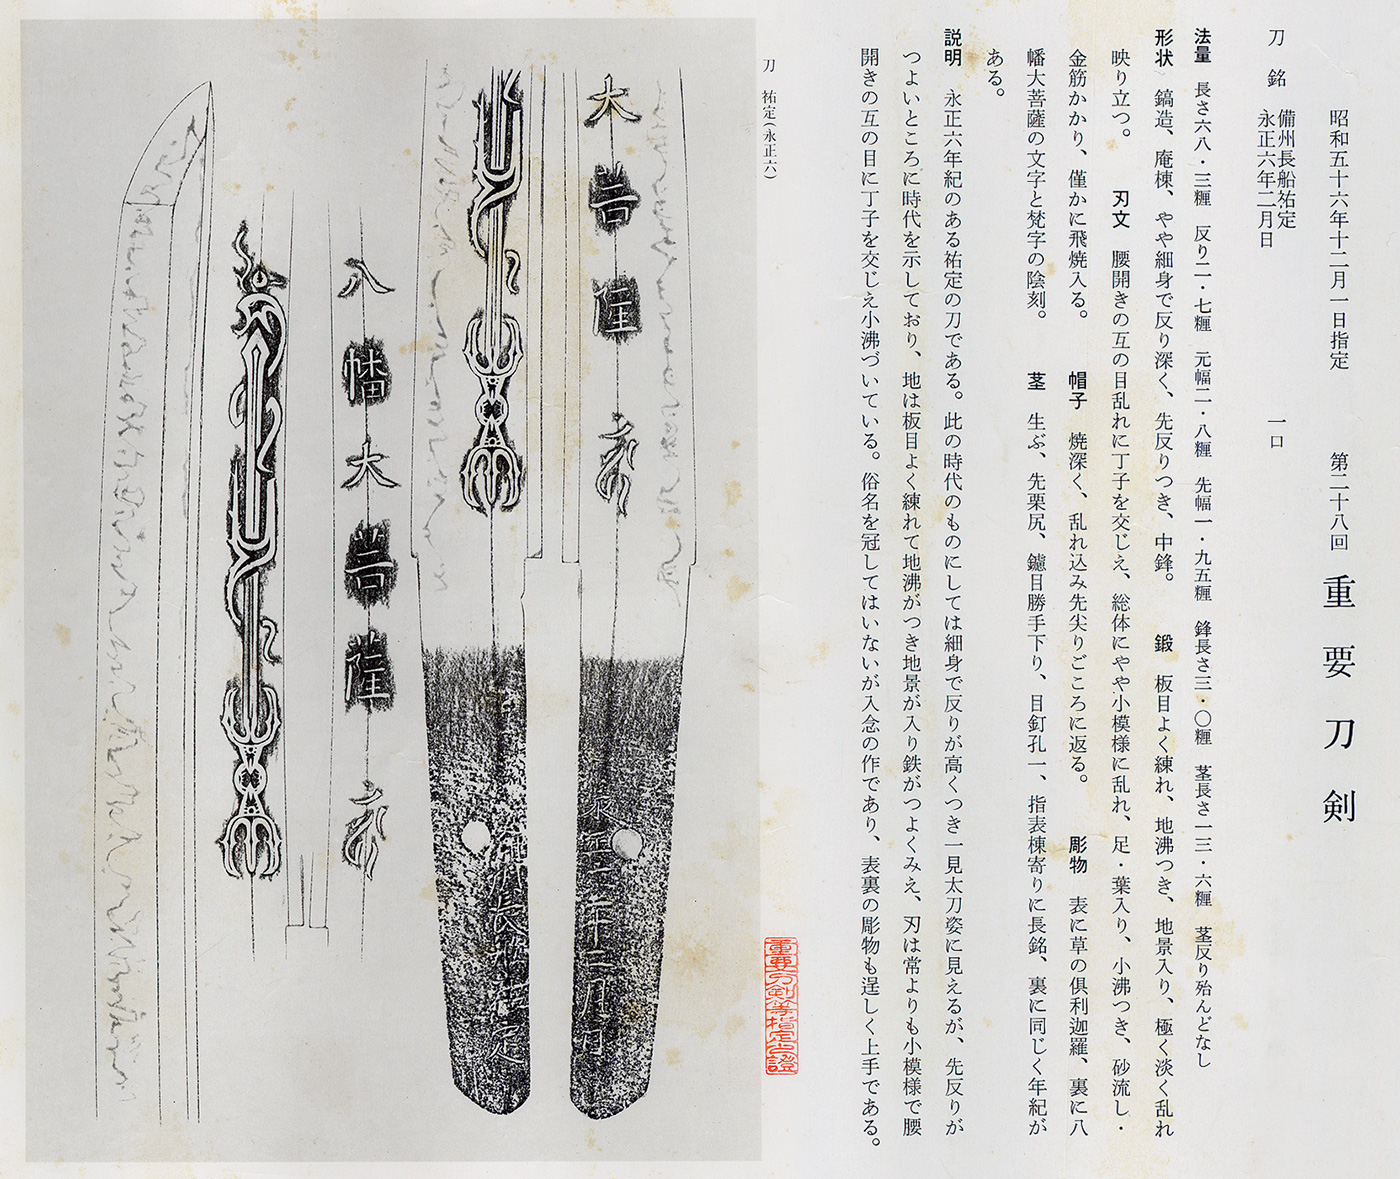 昭和五十六年十二月一日指定　第二十八回　重要刀剣
刀　銘　備州長船祐定　一口
永正六年二月日
法量　長さ六八・三糎　反り二・七糎　元幅二・八糎　先幅一・九五糎　鋒長さ三・〇糎　茎長さ一三・六糎　茎反り殆んどなし
形状　鎬造、庵棟、やや細身で反り深く、先反りつき、中鋒。　鍛　板目よく練れ、地沸つき、地景入り、極く淡く乱れ
映り立つ。　刃文　腰開きの互の目乱れに丁子を交じえ、総体にやや小模様に乱れ、足・葉入り、小沸つき、砂流し・
金筋かかり、僅かに飛焼入る。　帽子　焼深く、乱れ込み先尖りごころに返る。　彫物　表に草の倶利迦羅、裏に八
幡大菩薩の文字と梵字の陰刻。　茎　生ぶ、先栗尻、鑢目勝手下り、目釘孔一、指表棟寄りに長銘、裏に同じく年紀が
ある。
説明　永正六年紀のある祐定の刀である。此の時代のものにしては細身で反りが高くつき一見太刀姿に見えるが、先反りが
つよいところに時代を示しており、地は板目よく練れて地沸がつき地景が入り鉄がつよくみえ、刃は常よりも小模様で腰
開きの互の目に丁子を交じえ小沸づいている。俗名を冠してはいないが入念の作であり、表裏の彫物も逞しく上手である。
刀　祐定（永正六）
重要刀剣等指定之證
大菩薩
八幡大菩薩
年二月日
州長船祐定